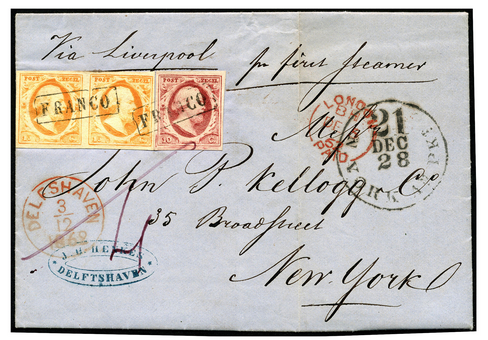 Via Liverpool pr first steamer
POST ZEGEL POST ZEGEL POST ZEGEL
FRANCO FRANCO
LONDON
PAID
21
DEC
28
Messrs
John P. Kellogg & Co
DELFSHAVEN
3
12
35 Broadstreet
DELFTSHAVEN
New York